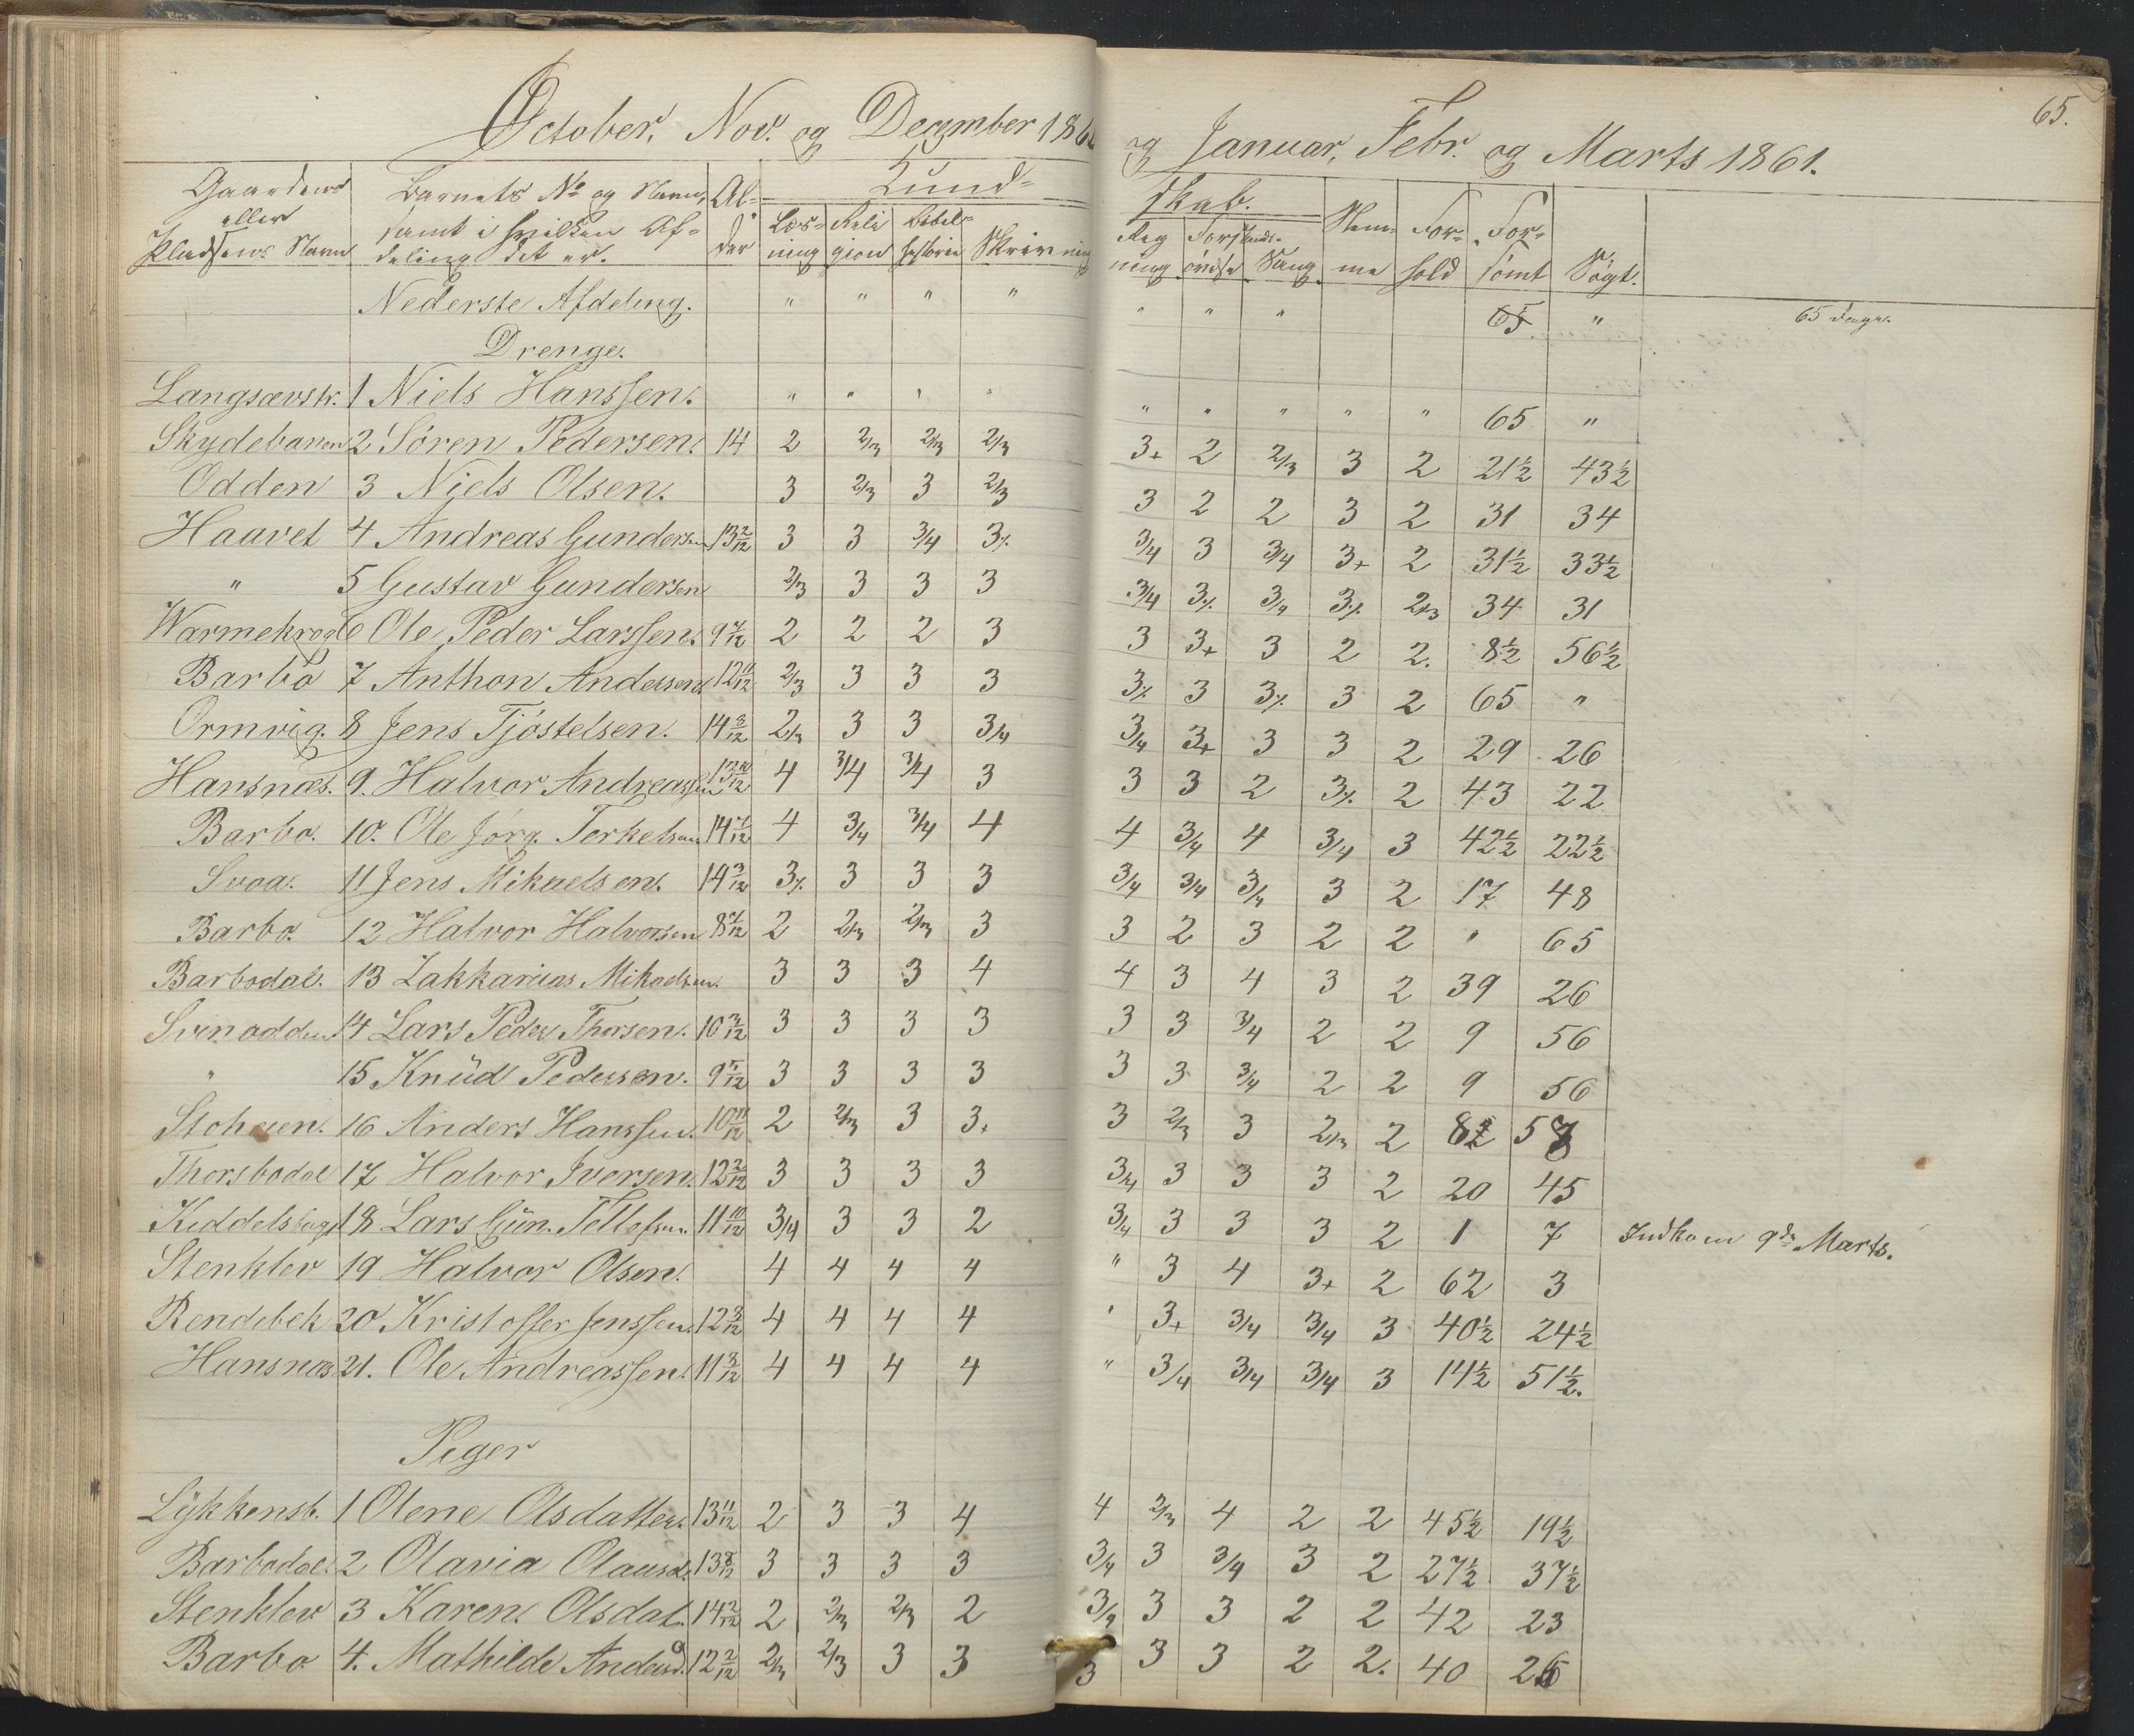 October, Nov. og December 186
og Januar, Febr. og Marts 1861.
65.
Gaardens eller Pladsens Navn
Barnets No og Navn, samt i hvilken Afdeling det er.
Alder
Kundskab.
Læsning Religion Bibelhistorie Skrivning
Regning Sang Nemme Forhold Forsømt Søgt.
Nederste Afdeling. " " " " " " " 65 " 65 Dage.
Drenge.
Langsævstr. 1 Niels Hanssen. " " " " " " " " " 65 "
Skydebanen 2 Sören Pedersen. 14 2 2/3 2/3 2/3 3+ 2 2/3 3 2 21½ 43½
Odden 3 Niels Olsen. 3 2/3 3 2/3 3 2 2 3 2 31 34
Haavet 4 Andreas Gundersen 13 2/12 3 3 3/4 3⁒ 3/4 3 3/4 3+ 2 31½ 33½
" 5 Gustav Gundersen 2/3 3 3 3 3/4 3⁒ 3/4 3⁒ 2/3 34 31
Warmekrog 6 Ole Peder Larssen. 9 7/12 2 2 2 3 3 3+ 3 2 2. 8½ 56½
Barbo 7 Anthon Andersen 12 11/12 2/3 3 3 3 3⁒ 3 3⁒ 3 2 65 "
Ormvig. 8 Jens Tjöstelsen. 14 8/12 2/3 3 3 3/4 3/4 3+ 3 3 2 29 26
Hansnæs. 9. Halvor Andreassen 13 10/12 4 3/4 3/4 3 3 3 2 3⁒ 2 43 22
Barbo. 10. Ole Jörg. Terkelsen 14 7/12 4 3/4 3/4 4 4 3/4 4 3/4 3 42½ 22½
Svoa. 11 Jens Mikaelsen. 14 9/12 3⁒ 3 3 3 3/4 3/4 3/4 3 2 17 48
Barbo. 12 Halvor Halvorsen 8 7/12 2 2/3 2/3 3 3 2 3 2 2 " 65
Barbodal. 13 Zakkarias Mikaelsen. 3 3 3 4 4 3 4 3 2 39 26
Svinodden 14 Lars Peder Thorsen. 10 3 3 3 3 3 3 3/4 2 2 9 56
" 15 Knüd Pedersen. 9 3 3 3 3 3 3 3/4 2 2 9 56
16 Anders Hanssen. 10 11/12 2 2/3 3 3+ 3 2/3 3 2/3 2 8 5
Thorsbodal 17 Halvor Iversen. 12 2/12 3 3 3 3 3/4 3 3 3 2 20 45
18 Lars Gün. Tellefsen. 11 10/12 3/4 3 3 2 3/4 3 3 3 2 1 7 Indkom 9de Marts.
Stenklev 19 Halvor Olsen. 4 4 4 4 " 3 4 3+ 2 62 3
Rendebek 20 Kristoffer Jenssen. 12 8/12 4 4 4 4 " 3+ 3/4 3/4 3 40½ 24½
Hansnæs 21. Ole Andreassen. 11 3/12 4 4 4 4 " 3/4 3/4 3/4 3 14½ 51½.
Piger
Lykkensb. 1 Olene Olsdatter. 13 11/12 2 3 3 4 4 2/3 4 2 2 45½ 19½
Barbodal. 2 Olavia Olausd. 13 8/12 3 3 3 3 3/4 3 3/4 3 2 27½ 37½
Stenklev 3 Karen Olsdat. 14 2/12 2 2/3 2/3 2 3/4 3 3 2 2 42 23
Barbo 4. Mathilde Andersd. 12 2/12 2/3 2/3 3 3 3 3 3 2 2. 40 2